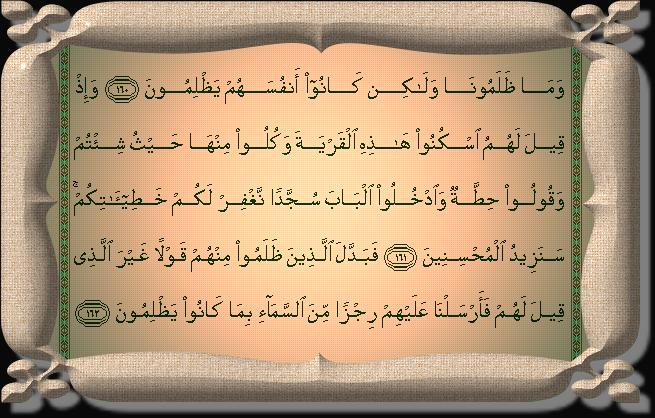 وَمَا ظَلَمُونَا وَلَٰكِن كَانُوٓا۟ أَنفُسَهُمْ يَظْلِمُونَ ١٦٠ وَإِذْ
قِيلَ لَهُمُ ٱسْكُنُوا۟ هَٰذِهِ ٱلْقَرْيَةَ وَكُلُوا۟ مِنْهَا حَيْثُ شِئْتُمْ
وَقُولُوا۟ حِطَّةٌ وَٱدْخُلُوا۟ ٱلْبَابَ سُجَّدًا نَّغْفِرْ لَكُمْ خَطِيٓـَٰٔتِكُمْ ۚ
سَنَزِيدُ ٱلْمُحْسِنِينَ ١٦١ فَبَدَّلَ ٱلَّذِينَ ظَلَمُوا۟ مِنْهُمْ قَوْلًا غَيْرَ ٱلَّذِى
قِيلَ لَهُمْ فَأَرْسَلْنَا عَلَيْهِمْ رِجْزًا مِّنَ ٱلسَّمَآءِ بِمَا كَانُوا۟ يَظْلِمُونَ ١٦٢